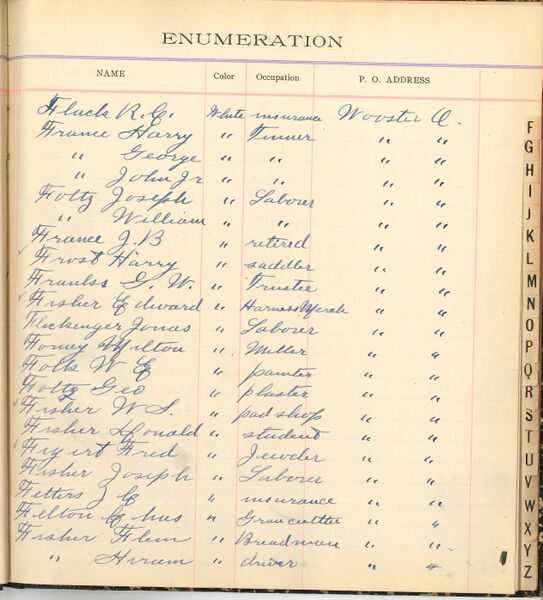 ENUMERATION
NAME Color Occupation P. O. ADDRESS
Fluck R. C. White insurance Wooster O.
France Harry " Tinner " "
" George " " " "
" John Jr " " " "
Foltz Joseph " Laborer " "
" William " " " "
France J. B " retired " "
Frost Harry " saddler " "
G. W. " Trustee " "
Fisher Edward " Harness Merch " "
Flickenger Jonas " Laborer " "
Milton " Miller " "
Folk W E " painter " "
Foltz Geo " plaster " "
Fisher W S. " pad shop " "
Fisher Donald " student " "
Fred " Jeweler " "
Fisher Joseph " Laborer " "
Fetters J E " insurance " "
Felton Chas " " "
Fisher " Breadman " "
" Hiram " driver " "
F
G
H
I
J
K
L
M
N
O
P
Q
R
S
T
U
V
W
X
Y
Z